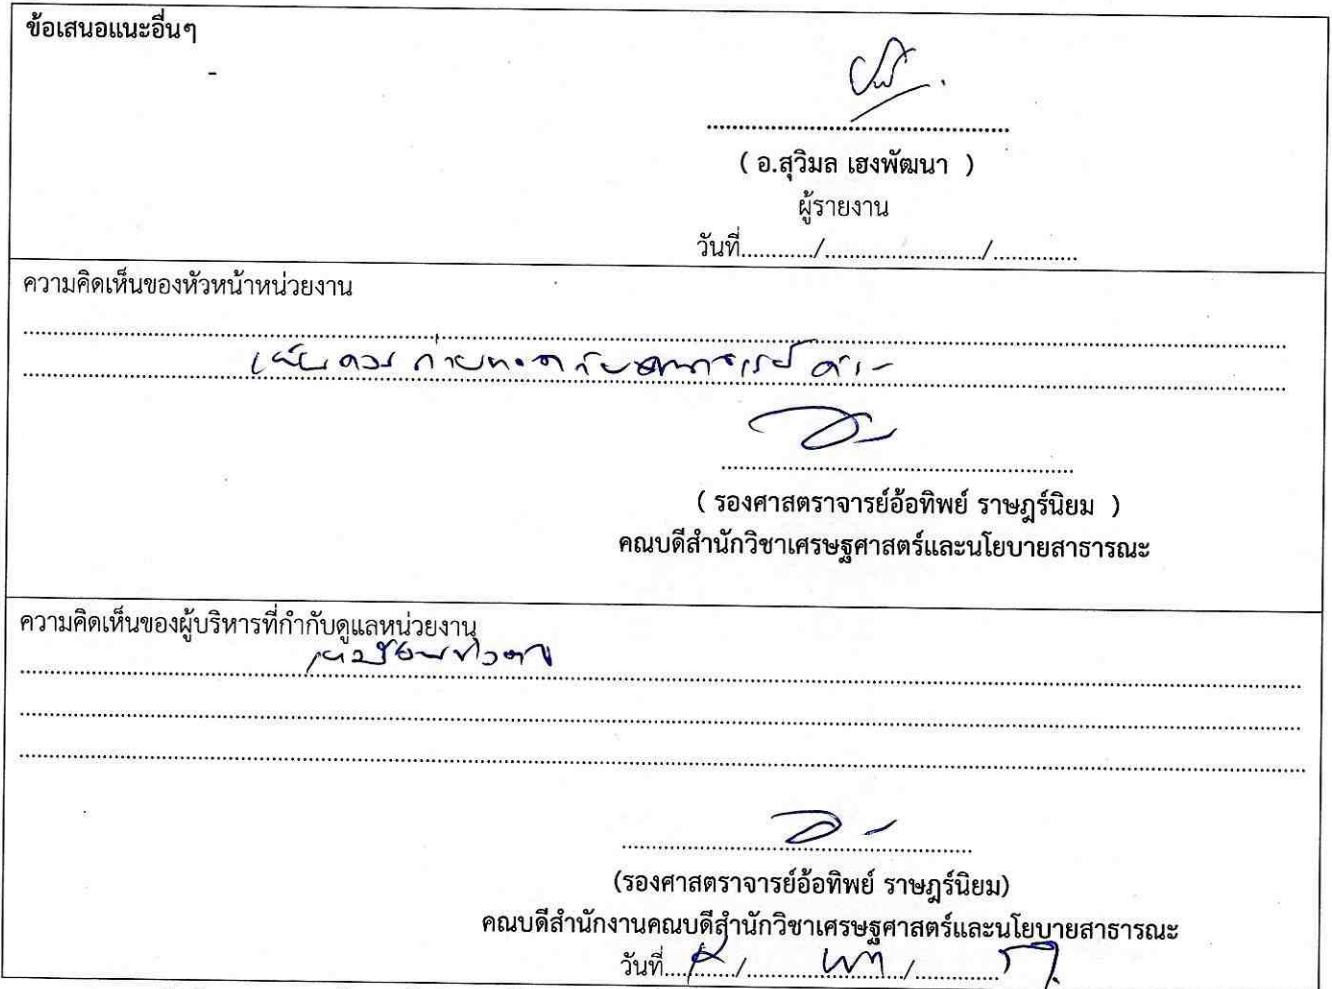 ข้อเสนอแนะอื่นๆ
-
( อ.สุวิมล เฮงพัฒนา )
ผู้รายงาน
วันที่............/........................../..............
ความคิดเห็นของหัวหน้าหน่วยงาน
เห็นควร
( รองศาสตราจารย์อ้อทิพย์ ราษฎร์นิยม )
คณบดีสำนักวิชาเศรษฐศาสตร์และนโยบายสาธารณะ
ความคิดเห็นของผู้บริหารที่กำกับดูแลหน่วยงาน
(รองศาสตราจารย์อ้อทิพย์ ราษฎร์นิยม)
คณบดีสำนักงานคณบดีสำนักวิชาเศรษฐศาสตร์และนโยบายสาธารณะ
วันที่